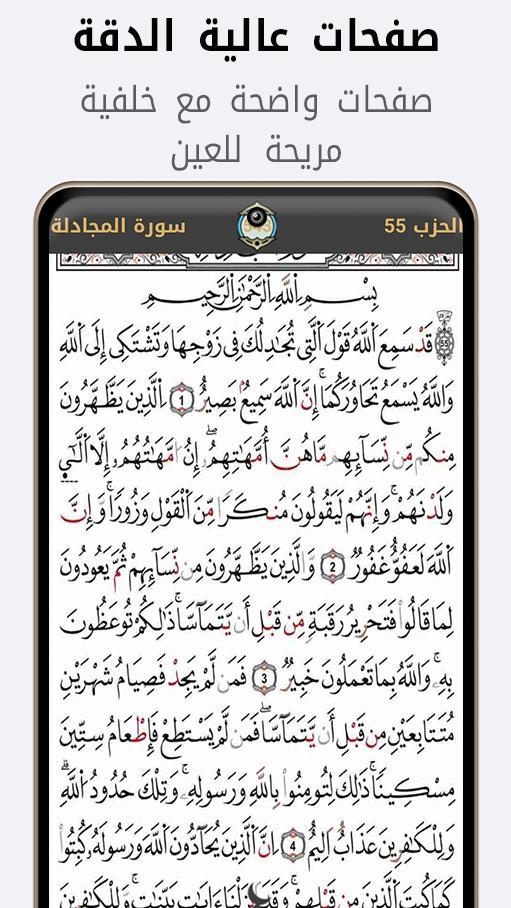 صفحات عالية الدقة
صفحات واضحة مع خلفية
مريحة للعين
الحزب 55
سورة المجادلة
بِسْمِ اللَّهِ الرَّحْمَٰنِ الرَّحِيمِ
55
قَدْ سَمِعَ اللَّهُ قَوْلَ الَّتِي تُجَادِلُكَ فِي زَوْجِهَا وَتَشْتَكِي إِلَى اللَّهِ
وَاللَّهُ يَسْمَعُ تَحَاوُرَكُمَا إِنَّ اللَّهَ سَمِيعٌ بَصِيرٌ 1 الَّذِينَ يَظَّهَّرُونَ
مِنكُم مِّن نِّسَآئِهِم مَّا هُنَّ أُمَّهَٰتِهِمُۥٓ إِنُ امَّهَٰتُهُمُۥ إِلَّا الَّٰۓِ
وَلَدْنَهُمْ وَإِنَّهُمْ لَيَقُولُونَ مُنكَرًا مِّنَ الْقَوْلِ وَزُورًا وَإِنَّ
اللَّهَ لَعَفُوٌّ غَفُورٌ 2 وَالَّذِينَ يَظَّهَّرُونَ مِن نِّسَآئِهِمْ ثُمَّ يَعُودُونَ
لِمَا قَالُوا فَتَحْرِيرُ رَقَبَةٍ مِّن قَبْلِ أَن يَتَمَآسَّا ذَٰلِكُمْ تُوعَظُونَ
بِهِۦ وَاللَّهُ بِمَا تَعْمَلُونَ خَبِيرٌ 3 فَمَن لَّمْ يَجِدْ فَصِيَامُ شَهْرَيْنِ
مُتَتَابِعَيْنِ مِن قَبْلِ أَن يَتَمَآسَّا فَمَن لَّمْ يَسْتَطِعْ فَإِطْعَامُ سِتِّينَ
مِسْكِينًا ذَٰلِكَ لِتُومِنُوا بِاللَّهِ وَرَسُولِهِۦ وَتِلْكَ حُدُودُ اللَّهِ
وَلِلْكَٰفِرِينَ عَذَابٌ اَلِيمٌ 4 اِنَّ الَّذِينَ يُحَآدُّونَ اللَّهَ وَرَسُولَهُۥ كُبِتُوا
كَمَا كُبِتَ الَّذِينَ مِن قَبْلِهِمْ وَقَدَ أَنزَلْنَآ ءَايَٰتٍ بَيِّنَٰتٍ وَلِلْكَٰفِرِينَ